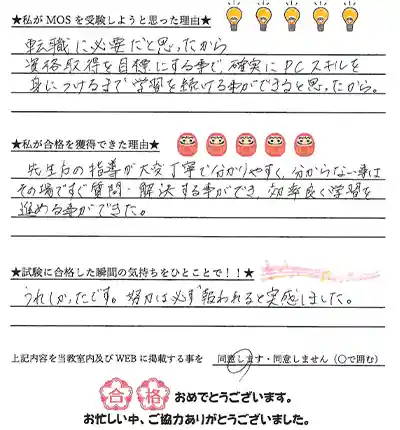 ★私がMOSを受験しようと思った理由★
転職に必要だと思ったから
資格取得を目標にする事で、確実にPCスキルを
身につけるまで学習を続ける事ができると思ったから。
★私が合格を獲得できた理由★
先生方の指導が大変丁寧で分かりやすく、分からない事は
その場ですぐ質問・解決する事ができ、効率良く学習を
進める事ができた。
★試験に合格した瞬間の気持ちをひとことで！！★
うれしかったです。努力は必ず報われると実感しました。
上記内容を当教室内及びWEBに掲載する事を 同意します・同意しません（〇で囲む）
合格 おめでとうございます。
お忙しい中、ご協力ありがとうございました。